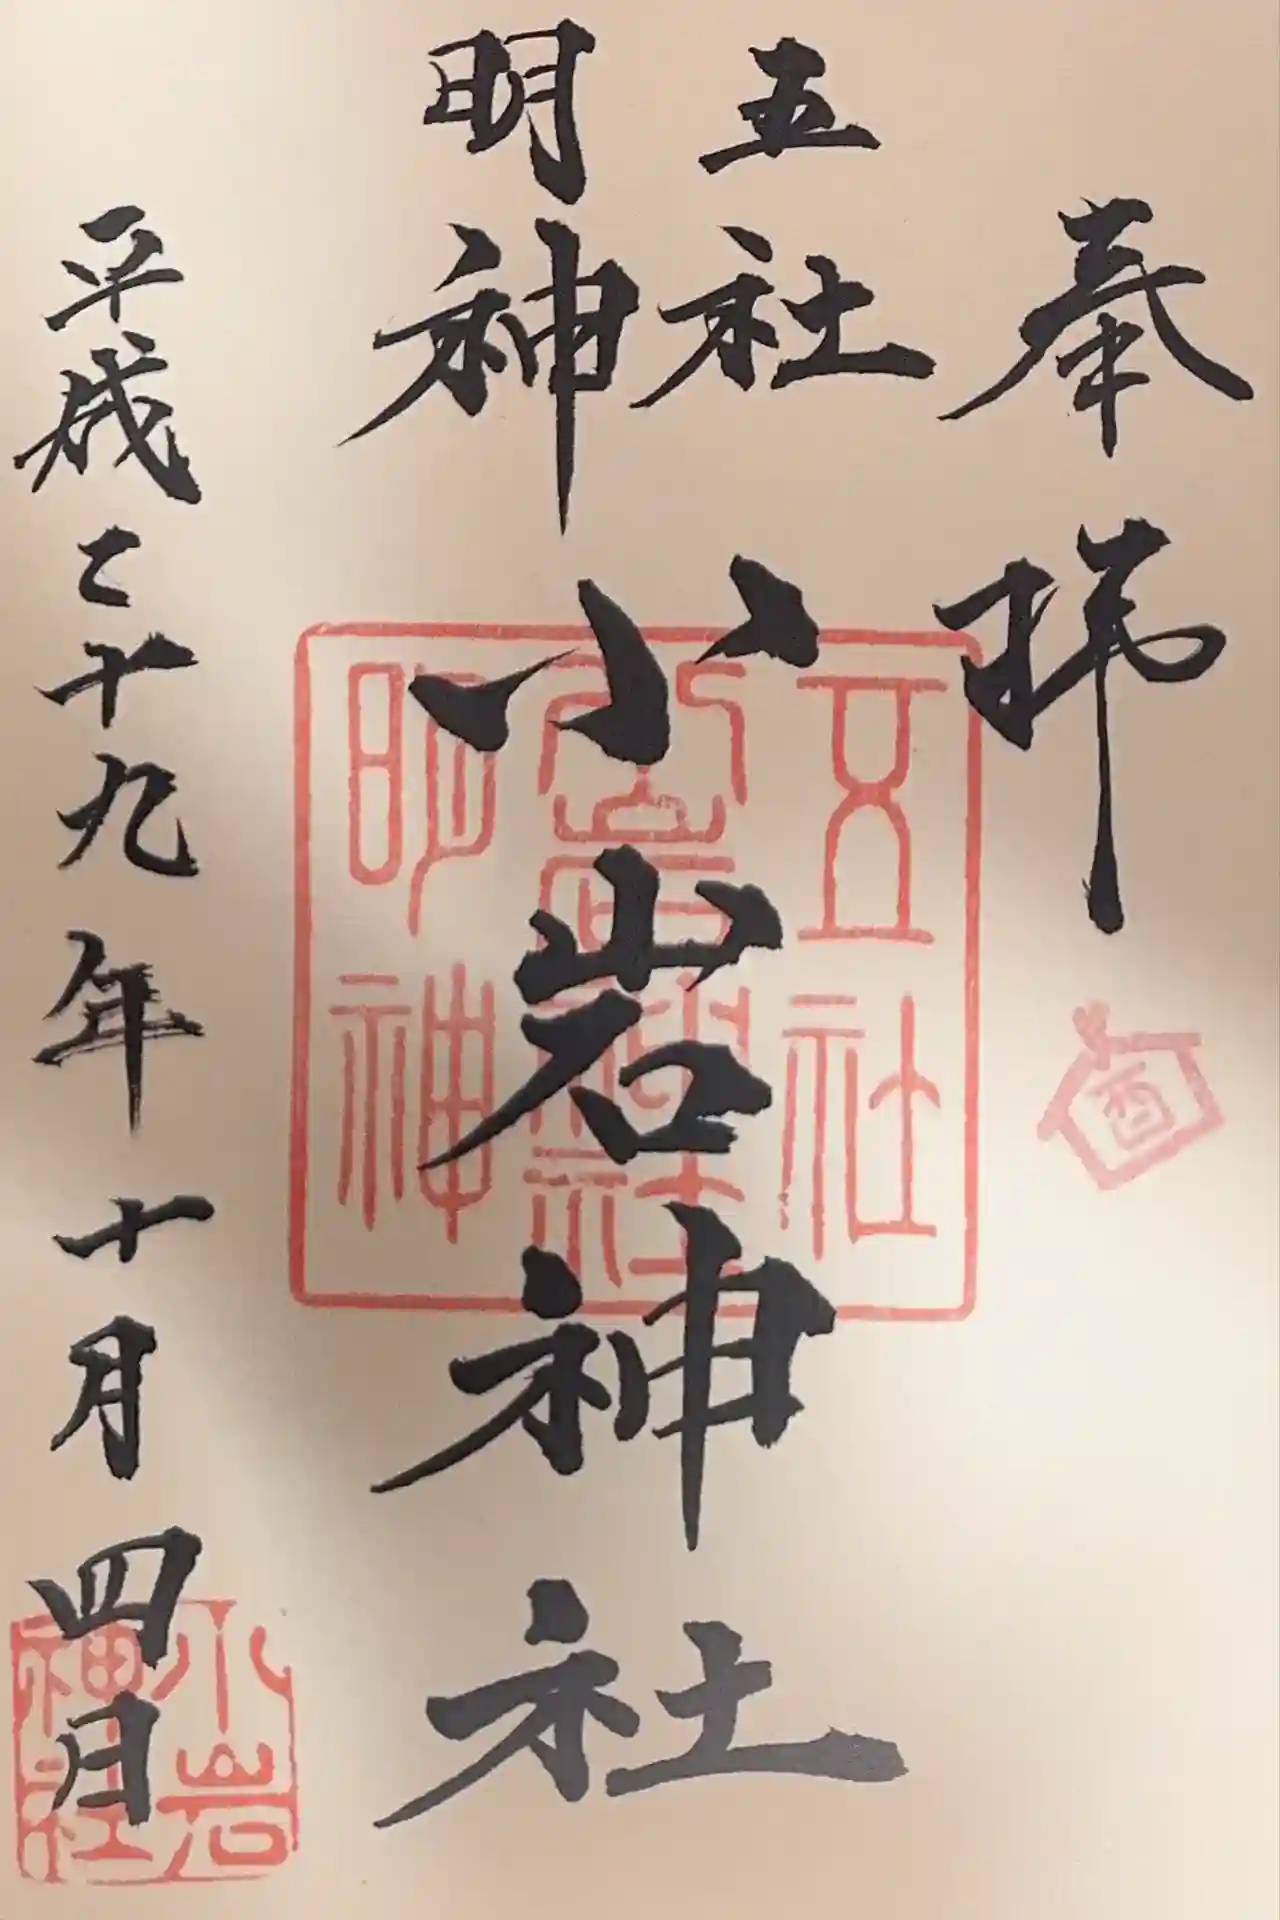 奉拝
酉
五社
明神
小岩神社
五社
小岩神社
明神
平成二十九年十月四日
小岩
神社